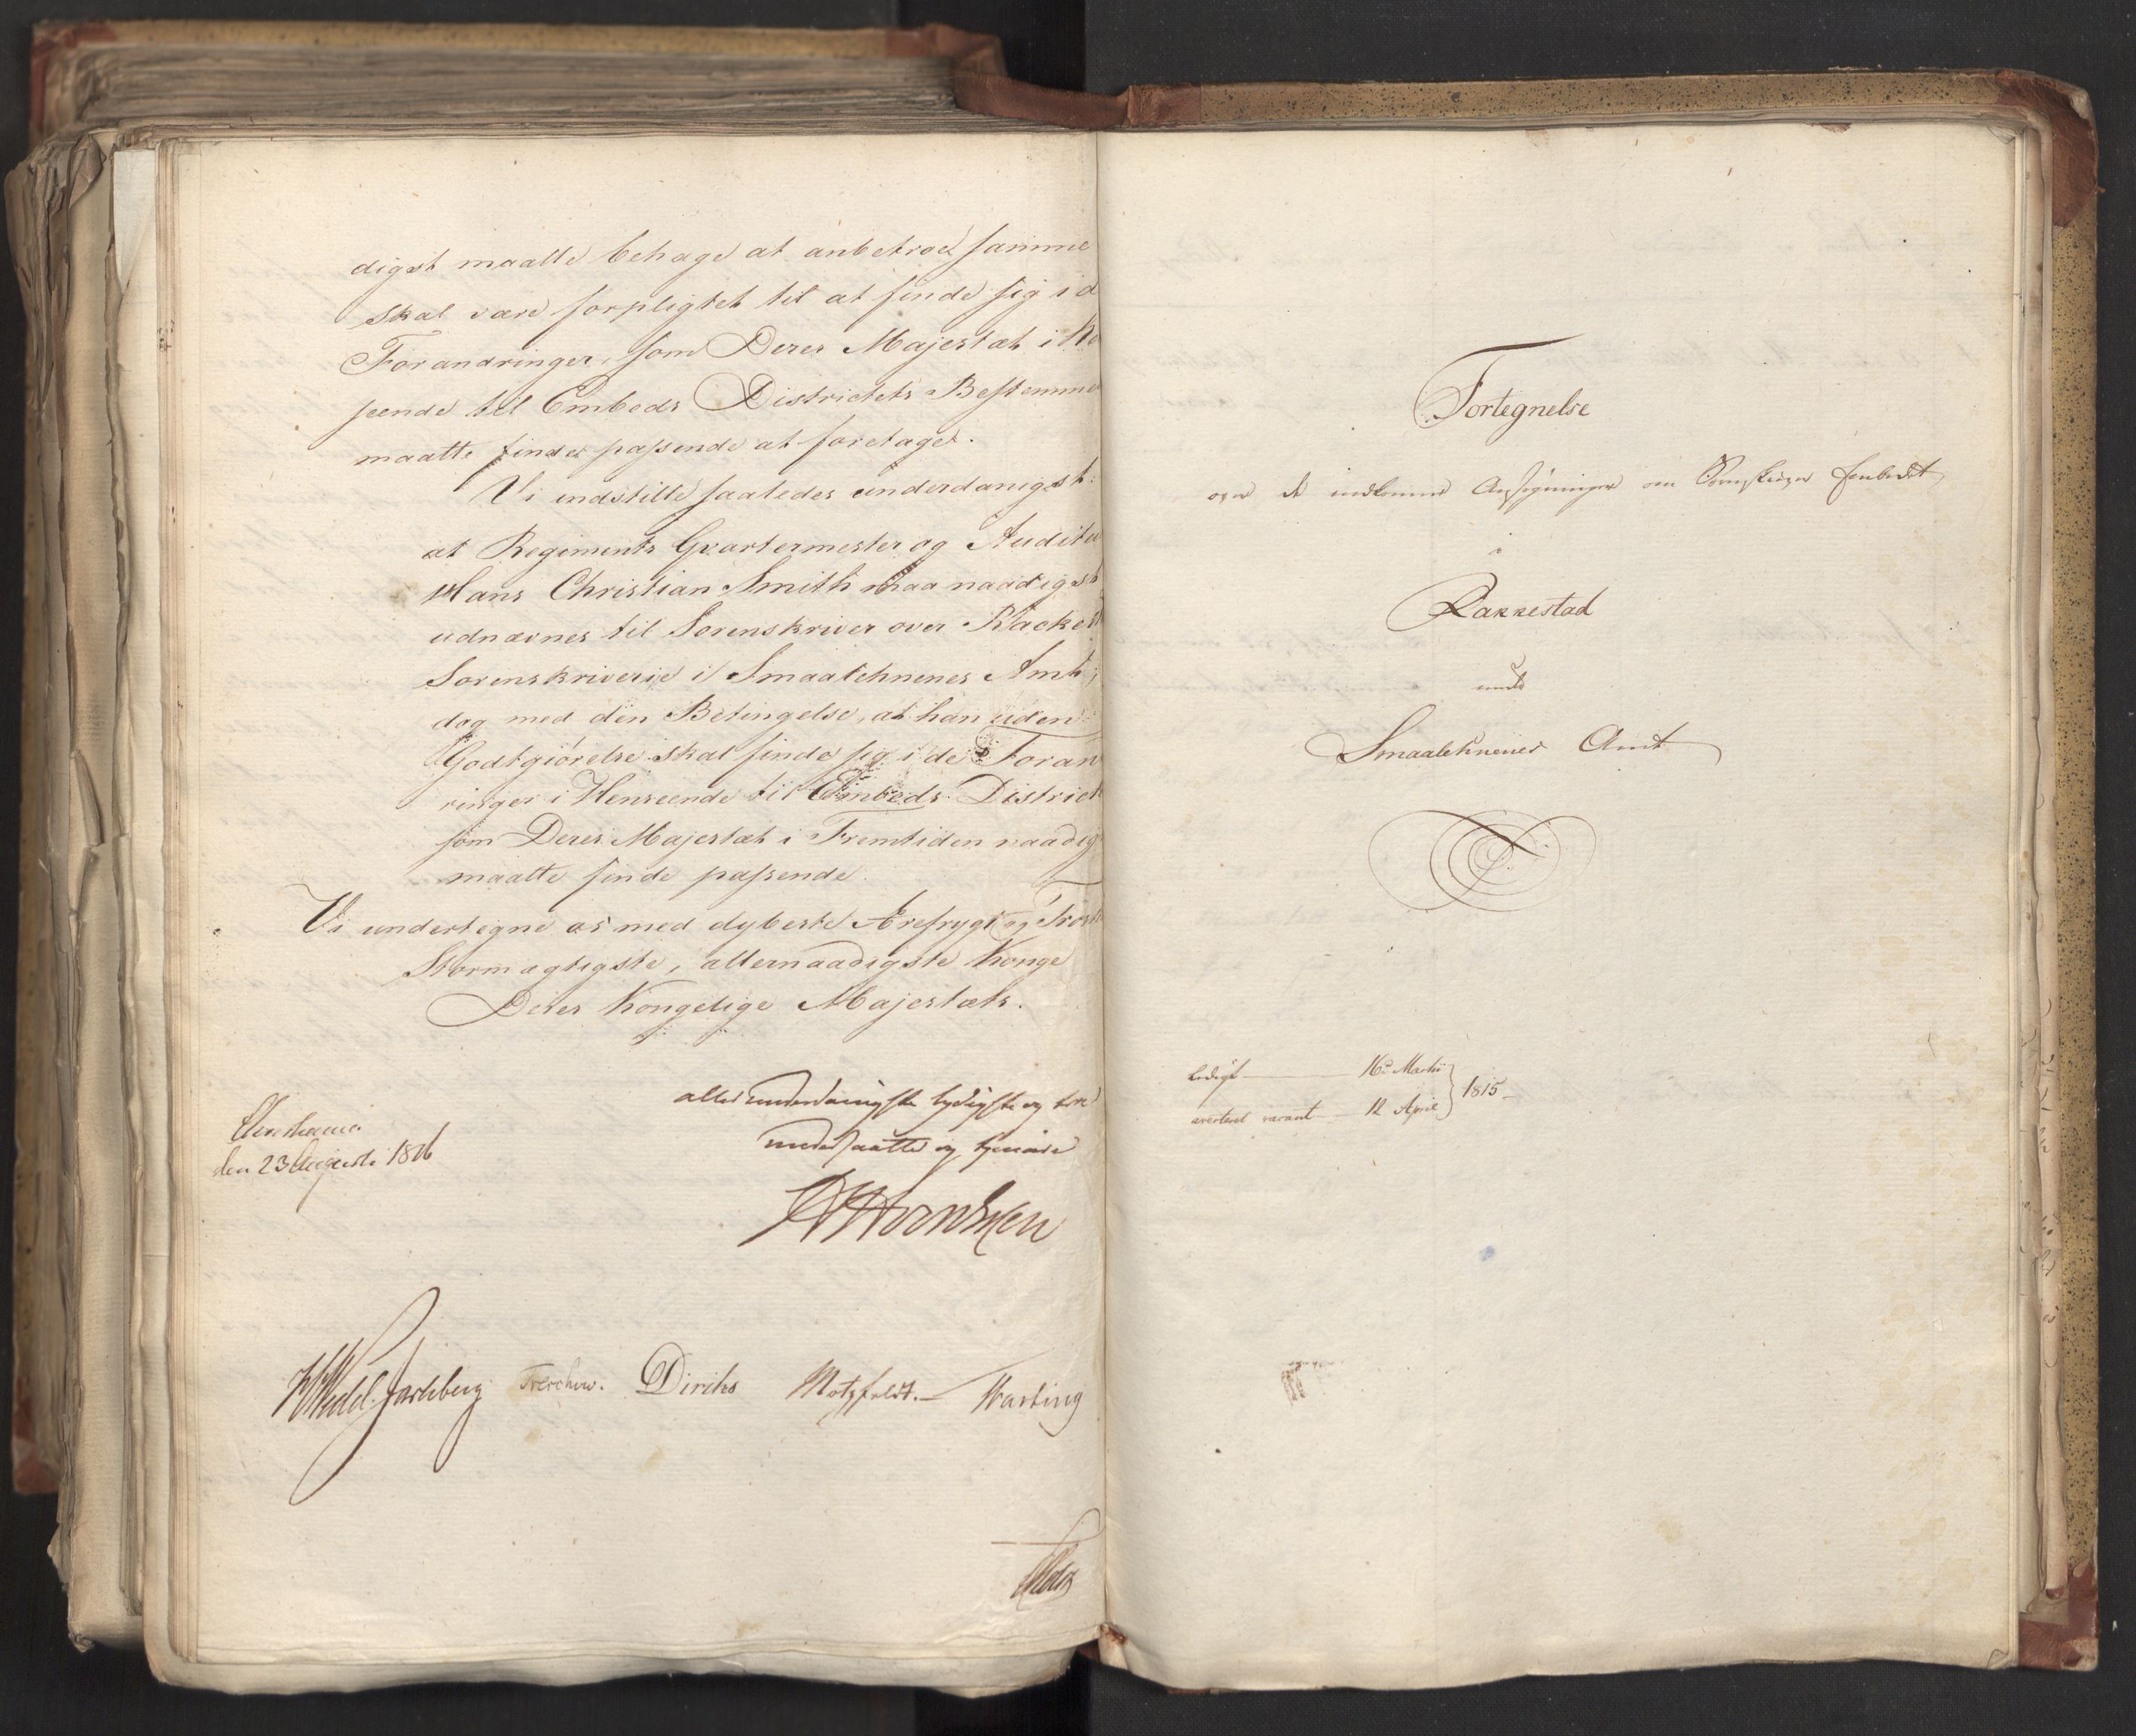 digst maatte behage at anbetroe samme
skal være forpligtet til at finde sig i d
Forandringer, som Deres Majestæt i He
seende til Embeds Districtets Bestemme
maatte finde passende at foretage.
Vi indstille saaledes underdanigst:
at Regiments Qvartermester og Auditeu
Hans Christian Smith maa naadigst
udnævnes til Sorenskriver over Rackest
Sorenskriverie i Smaalehnenes Amt,
dog med den Betingelse, at han uden
Godtgiörelse skal finde sig i de Foran
ringer i Henseende til Embeds District
som Deres Majestæt i Fremtiden naadig
maatte finde passende.
Vi undertegne os med dybeste Ærefrygt og Trosk
Stormægtigste, allernaadigste Konge
Deres Kongelige Majestæts.
allerunderdanigste lydigste og troe
undersaatter og tjenere
Christiania
den 23 Augusti 1816
Wedel Jarlsberg Treschow. Diriks Motzfeldt. Harting
Fortegnelse
over de indkomne Ansøgninger om Sorenskriver Embedet
i
Rakkestad
under
Smaalehnenes Amt
Ledigt 16de Martii
averteret vacant 12 April } 1815